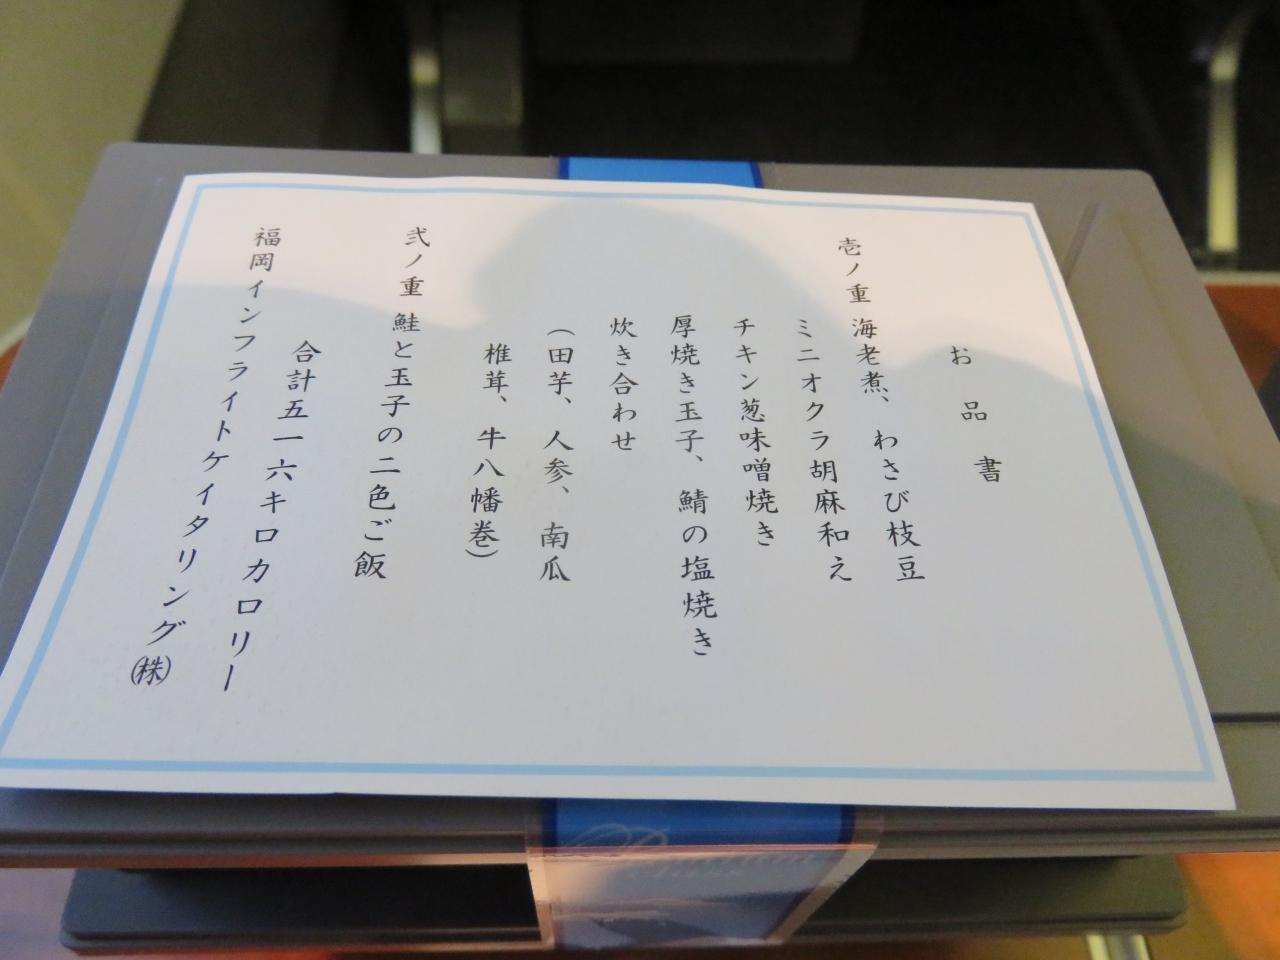 お品書
壱ノ重 海老煮、わさび枝豆
ミニオクラ胡麻和え
チキン葱味噌焼き
厚焼き玉子、鯖の塩焼き
炊き合わせ
（田芋、人参、南瓜
椎茸、牛八幡巻）
弐ノ重 鮭と玉子の二色ご飯
合計五一六キロカロリー
福岡インフライトケイタリング㈱
Premium
Class